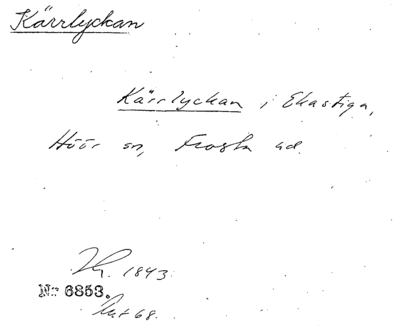 Kärrlyckan
Kärrlyckan i Ekastiga,
Höör sn, Frosta hd.
1843
Nr 6853.